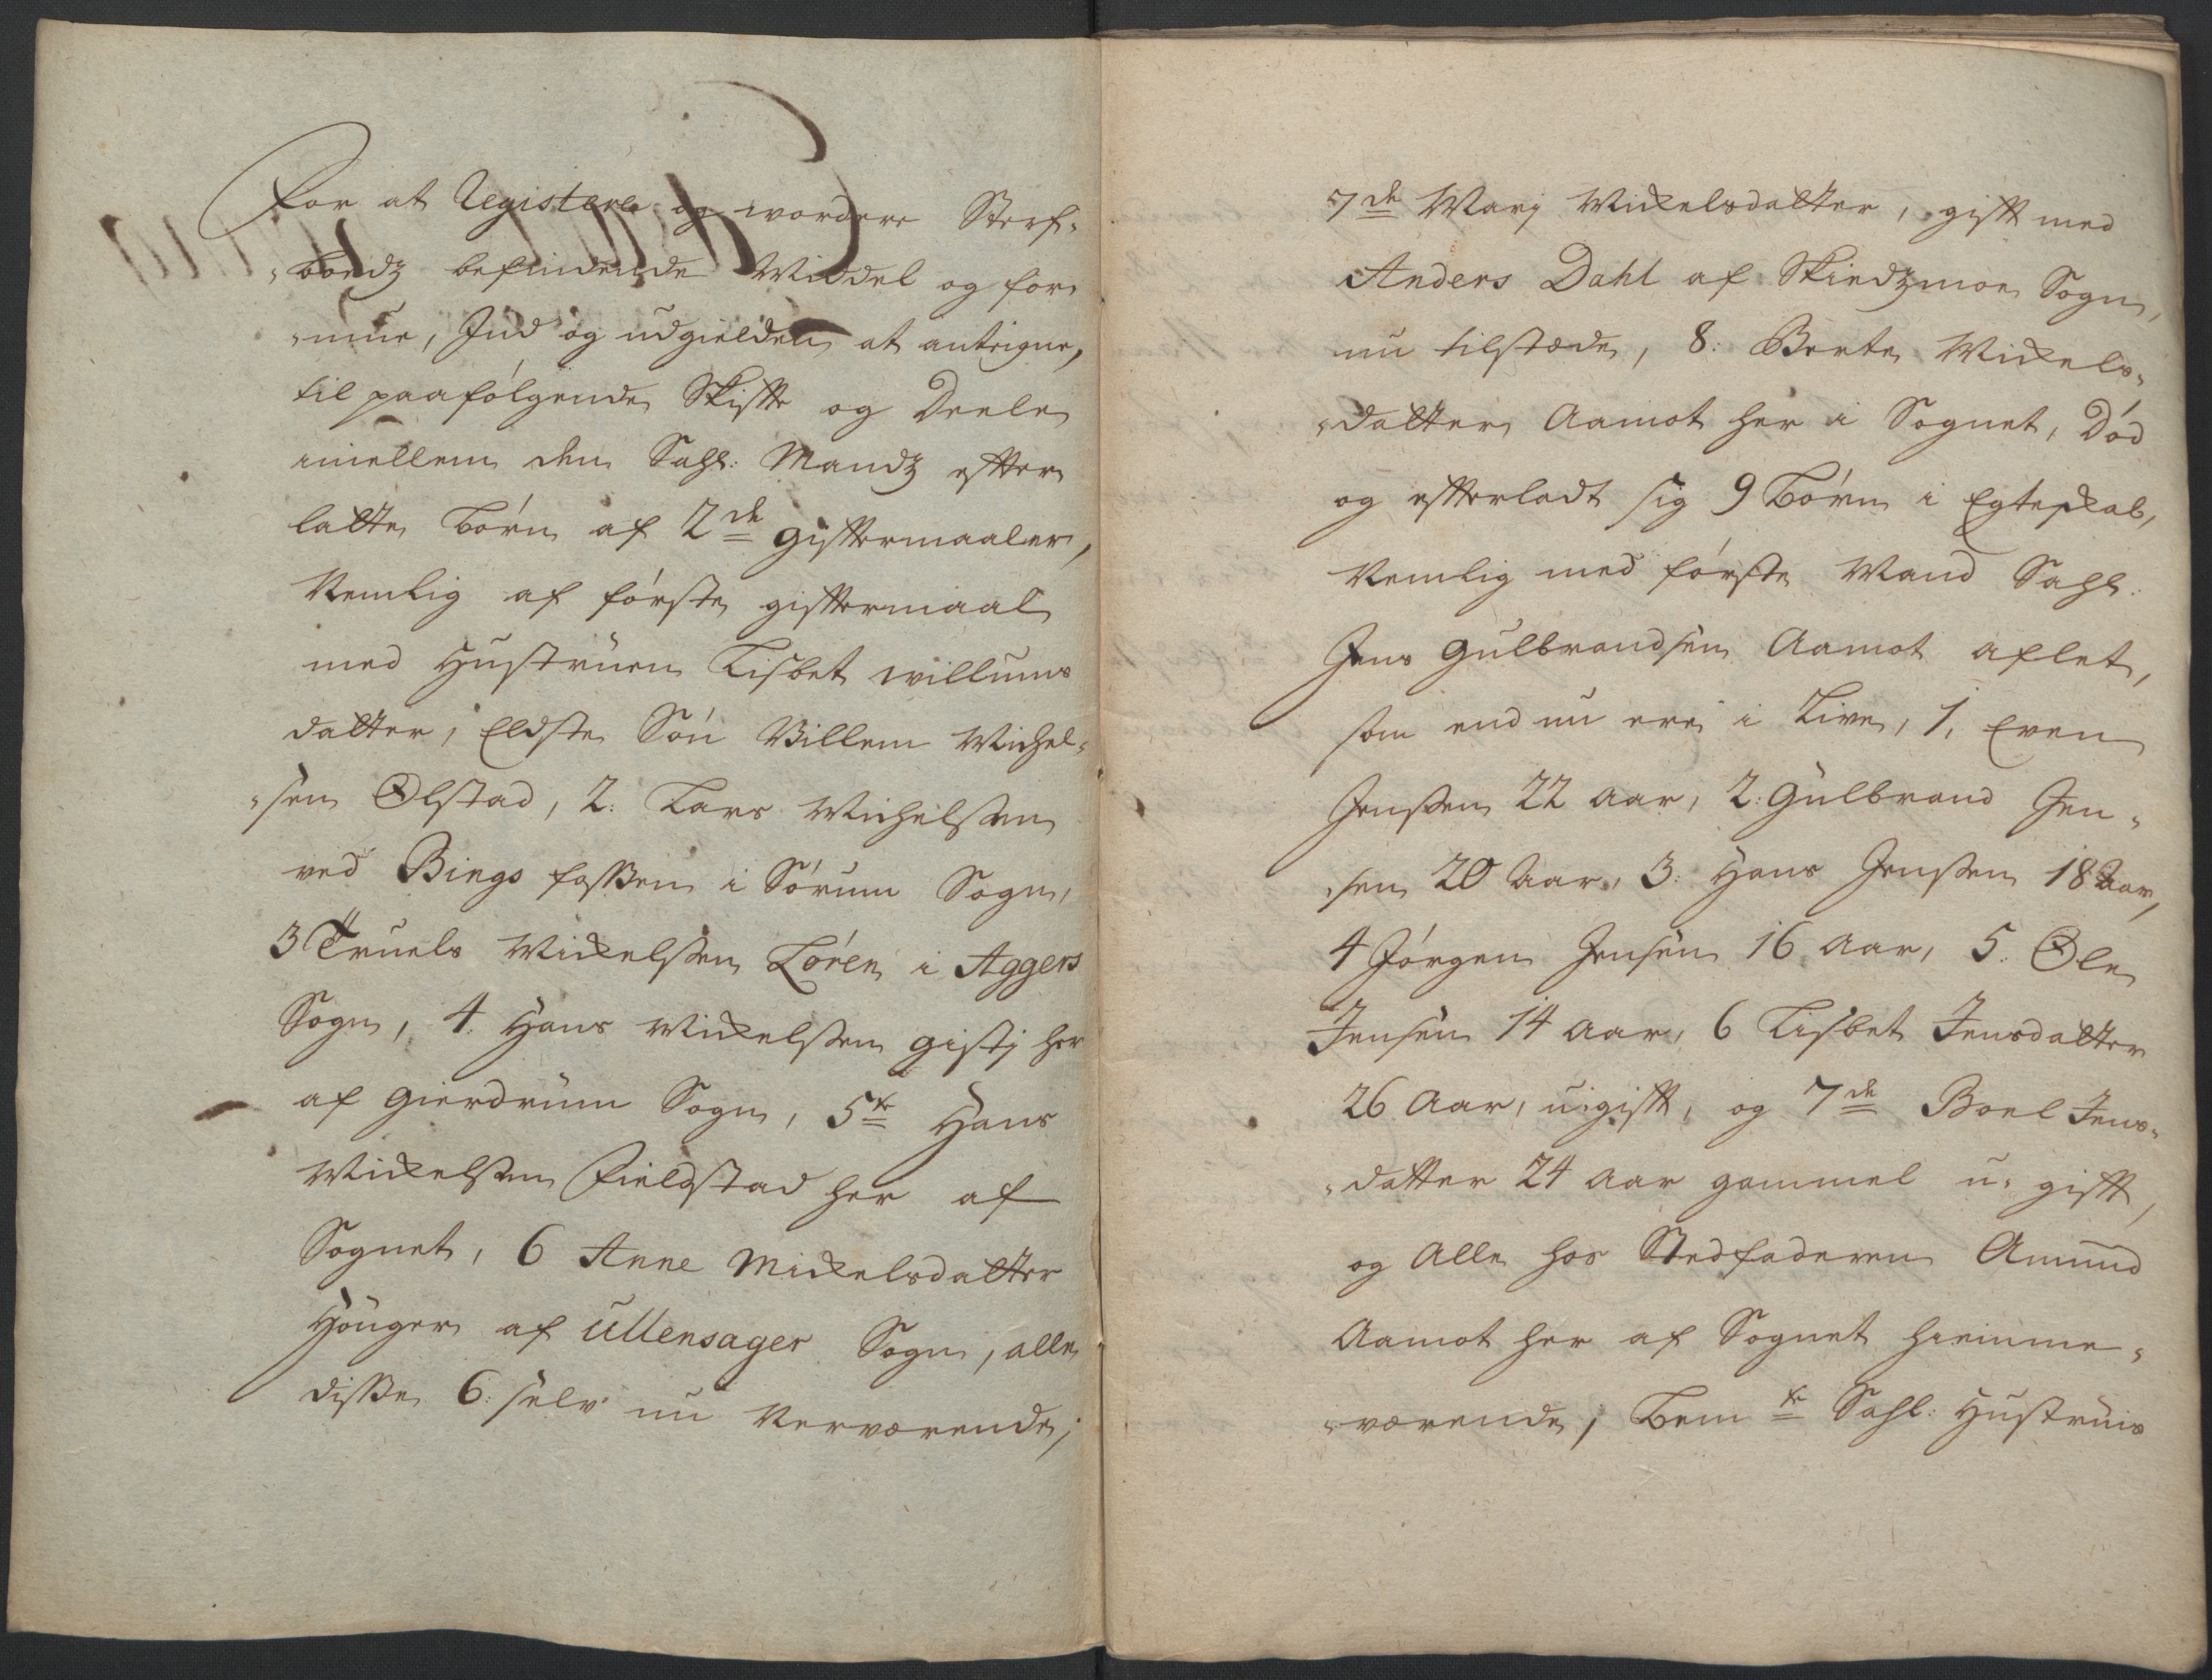 For at Registere og wordere Sterf-
-boedz befindende Middel og for-
-mue, Ind og udgielden at anteigne,
til paafølgende Skiffte og Deele
imellem den Sahl: Mandz effter
latte Børn af 2de gifftermaaler,
Nemlig af første gifftermaal
med Hustruen Lisbet willums
datter, Eldste Søn Villem Michel-
-sen Ølstad, 2: Lars Michelssen
ved Bings fossen i Sørum Sogn,
3 Truels Mickelssen Løren i Aggers
Sogn, 4. Hans Mickelssen gistj her
af gierdrum Sogn, 5te Hans
Mickelssen Fieldstad her af
Sognet, 6 Anne Mickelsdatter
Hønger af Ullensager Sogn, alle
disse 6: selv nu Nerværende,
7de Marj Mickelsdatter, gifft med
Anders Dahl af Skiedzmoe Sogn,
nu tilstæde, 8: Berte Mickels-
-datter Aamot her i Sognet, Død
og effterladt sig 9 Børn i Egteskab,
Nemlig med første Mand Sahl:
Jens Gulbrandsen Aamot aflet,
som end nu ere i Live, 1, Even
Jenssen 22 aar, 2: Gulbrand Jen-
-sen 20 Aar, 3: Hans Jenssen 18 Aar,
4 Jørgen Jensen 16 aar, 5. Øle
Jensen 14 aar, 6 Lisbet Jensdatter
26 Aar, u-gifft, og 7de Boel Jens-
-datter 24 Aar gammel u-gifft,
og Alle hos Stedfaderen Amund
Aamot her af Sognet hiemme-
-værende, Bemte Sahl: Hustrues